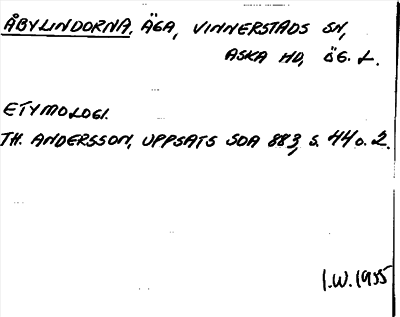 ÅBYLINDORNA, ÄGA, VINNERSTADS SN,
ASKA HD, ÖG. L.
ETYMOLOGI.
TH. ANDERSSON, UPPSATS SOA 883, S. 44 o. 2.
I.W. 1955